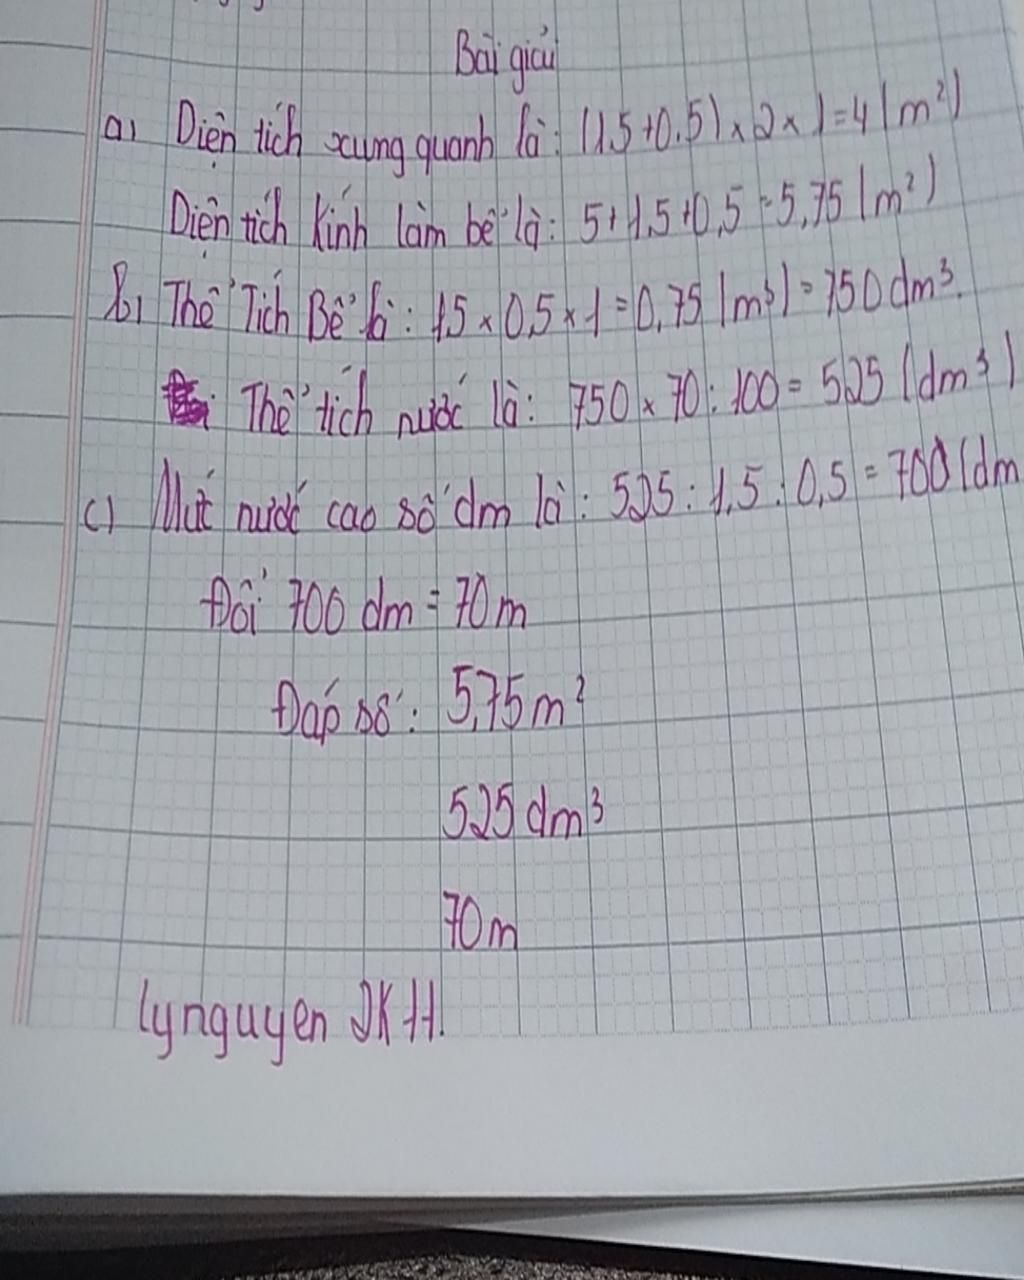 Bài giải
a) Diện tích xung quanh là: (1,5+0,5) x 2 x 1 = 4 (m²)
Diện tích kính làm bể là: 5+1,5+0,5 = 5,75 (m²)
b) Thể Tích Bể là: 1,5 x 0,5 x 1 = 0,75 (m³) = 750 dm³.
Thể tích nước là: 750 x 70 : 100 = 525 (dm³)
c) Mức nước cao số dm là: 525 : 1,5 : 0,5 = 700 (dm
Đổi 700 dm = 70 m
Đáp số: 5,75 m²
525 dm³
70 m
lynguyen JKH.